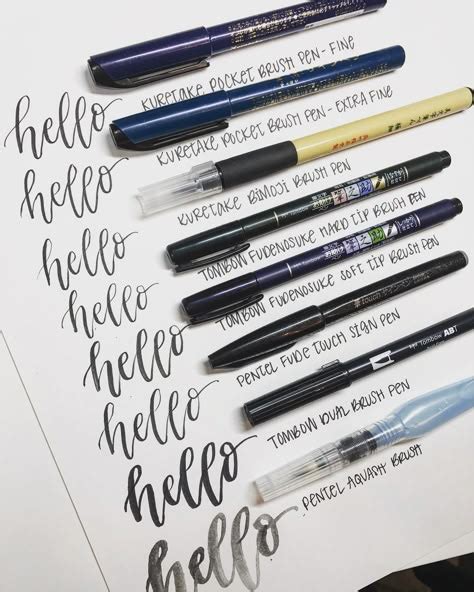 hello
KURETAKE POCKET BRUSH PEN - FINE
hello
KURETAKE POCKET BRUSH PEN - EXTRA FINE
hello
KURETAKE BIMOJI BRUSH PEN
hello
TOMBOW FUDENOSUKE HARD TIP BRUSH PEN
hello
TOMBOW FUDENOSUKE SOFT TIP BRUSH PEN
hello
PENTEL FUDE TOUCH SIGN PEN
hello
TOMBOW DUAL BRUSH PEN
hello
PENTEL AQUASH BRUSH
Tombow
Tombow
touch
Tombow ABT